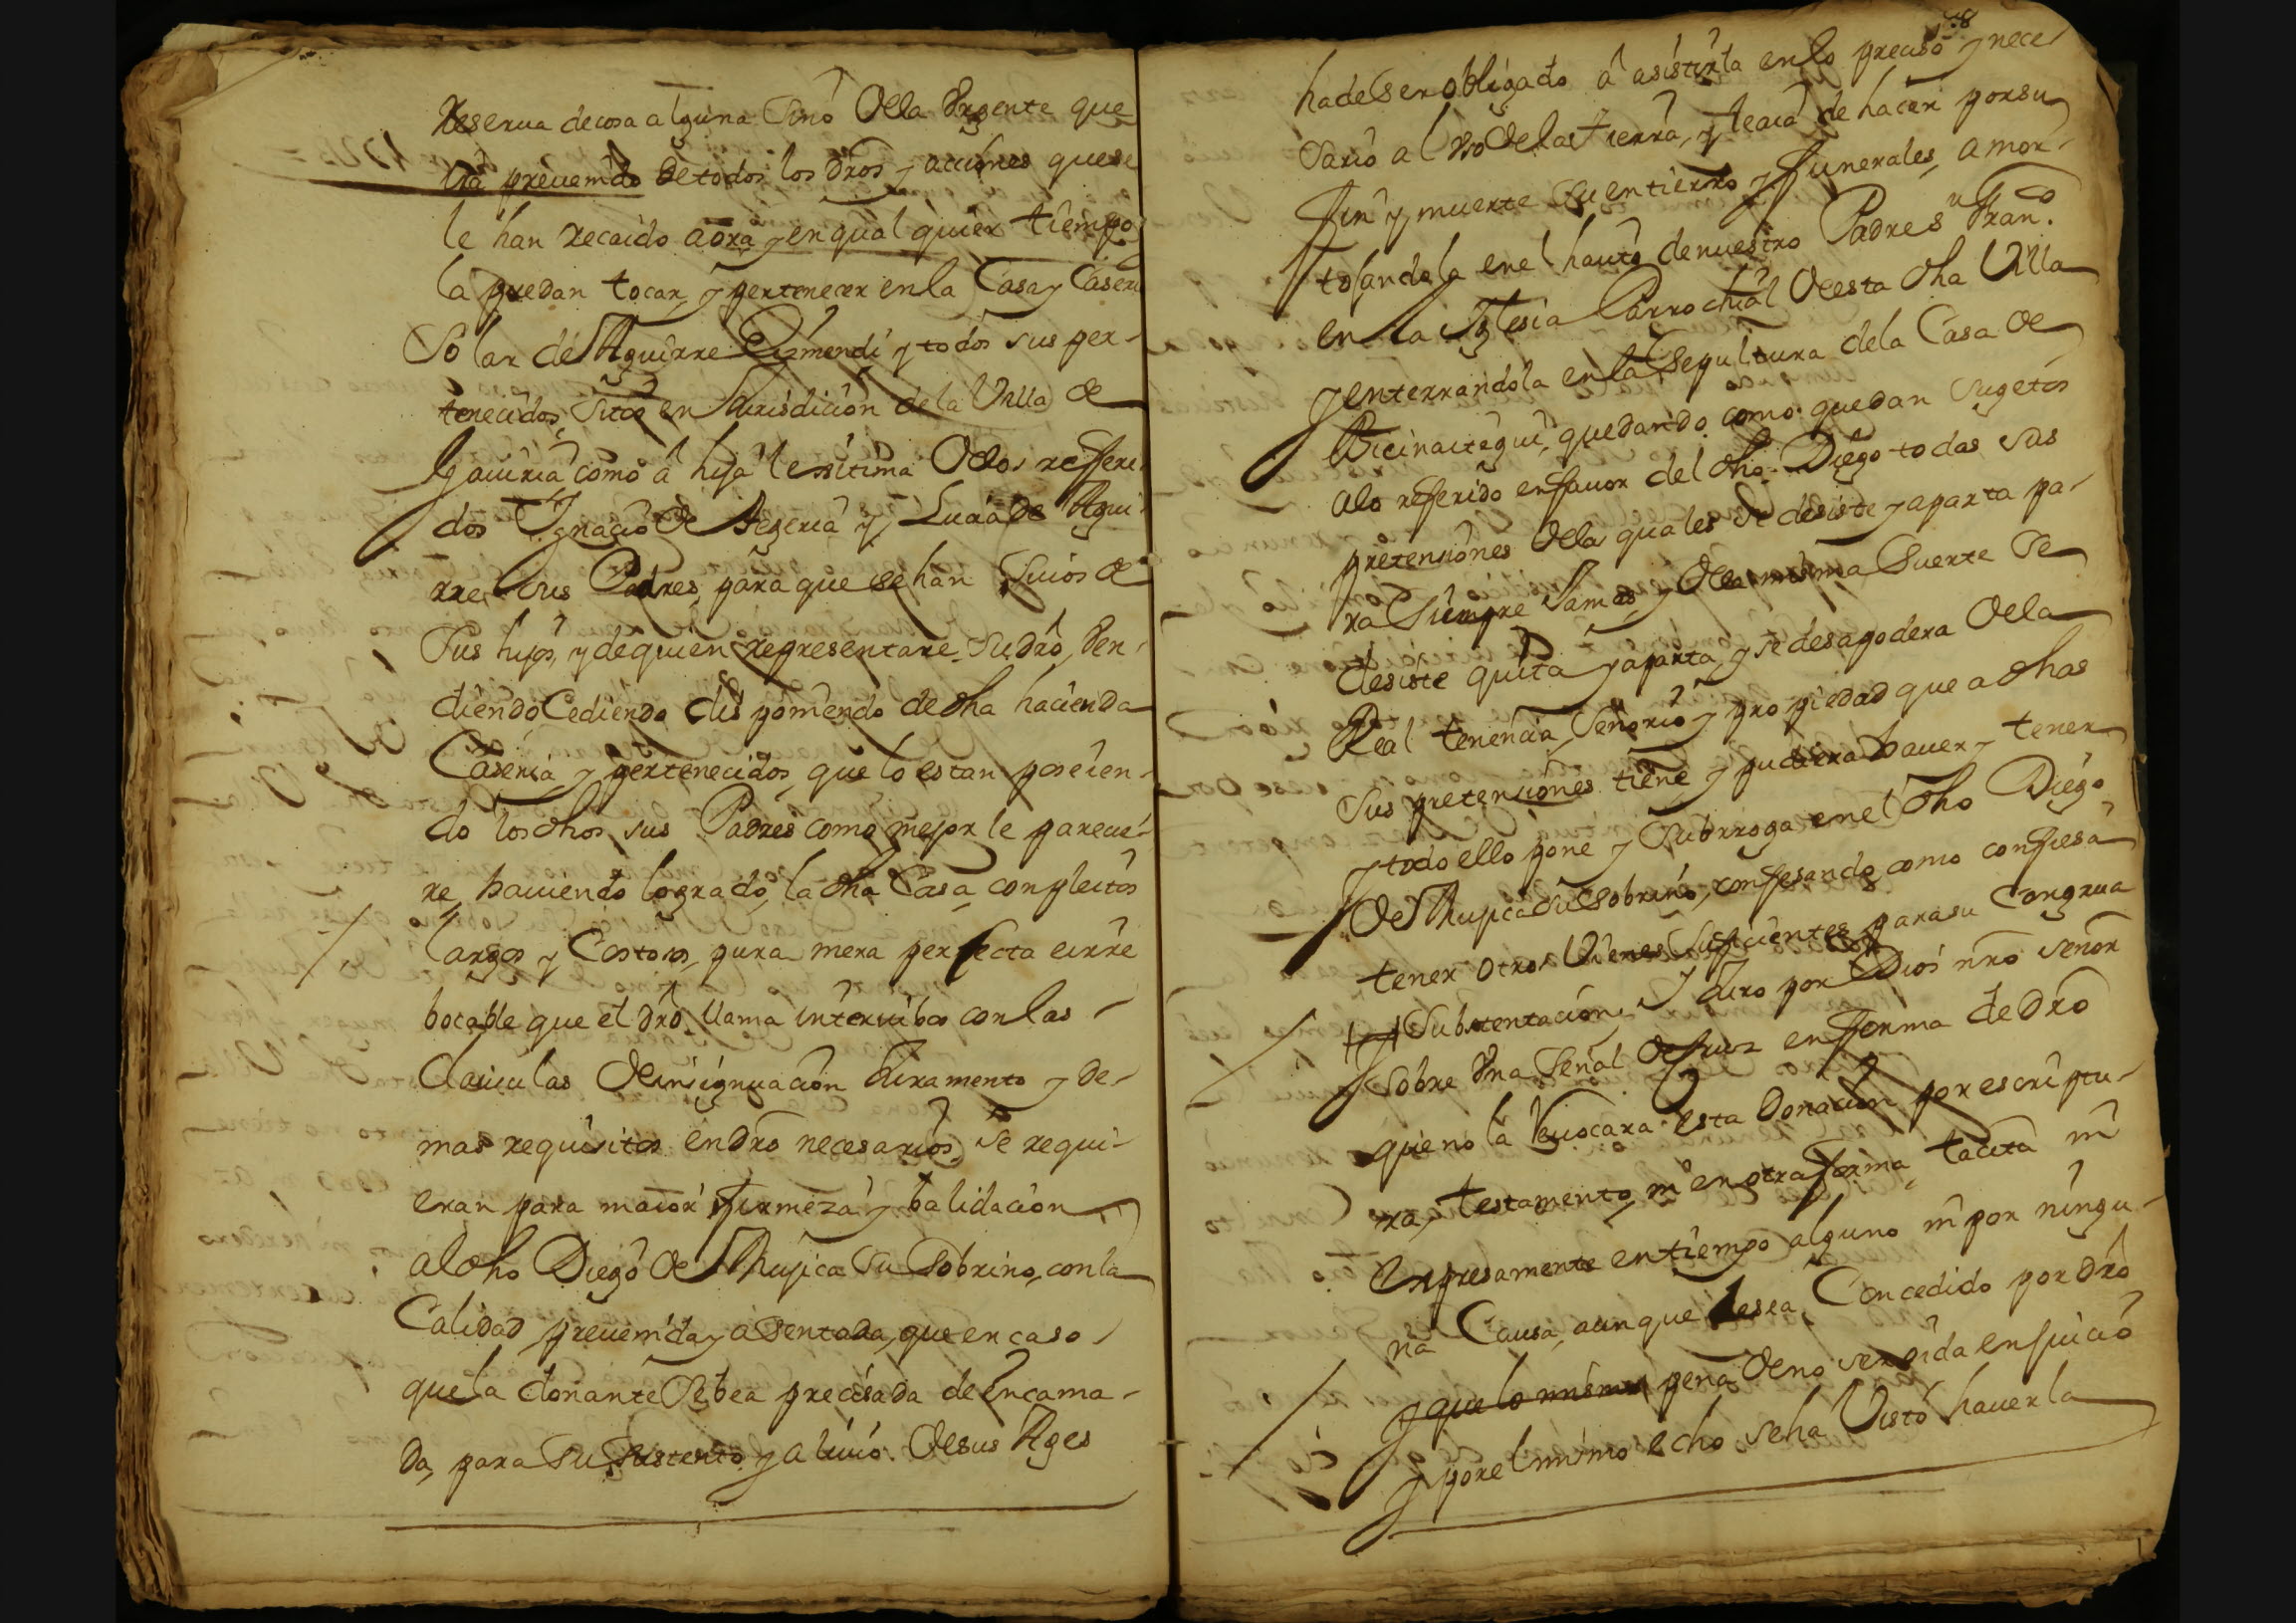 Reserua de cosa alguna Sinó dela Vrgente que
ba preuenido de todos los dros y acciones que se
le han recaido aora y en qual quier tiempo
la puedan tocar, y pertenecer en la Casa y Caseri
Solar de Aguirre Eizmendi y todos sus per-
tenecidos, sitos en Jurisdicion de la Villa de
Gauiria como á hija lexitima delos refferi
dos Ignacio de Aseguria y Lucia de Agui-
rre sus Padres, para que sehan suios de
sus hijos, y de quien representare su dro, ben-
diendo Cediendo disponiendo de dha hacienda
Caseria y pertenecidos, que lo estan poseien-
do los dhos, sus Padres como mejor le pareciê-
re, hauiendo logrado, la dha Casa, con pleitos
largos y Costosos, pura mera perfecta eirre
bocable que el dro llama interuibos con las
Clausulas de insignuacion Juramento y de-
mas requisitos en dro necesarios, se requi-
eran para maior firmeza y balidacion
al dho Diego de Mujica su sobrino, con la
Calidad preuenida y asentada, que en caso
que la donante se bea precisada de Encama-
da, para su sustento y aliuio. de sus Ages
ha de ser obligado á asistirla en lo preciso y nece
sario al vso de la tierra, y lea de hacer por su
fin y muerte su entierro y funerales, amor-
tojandola en el hauito de nuestro Padre Sn Franco.
en la Iglesia Parrochial de esta dha Villa
y enterrandola en la sepultura dela Casa de
Vicinaitegui, quedando como quedan sugetos
alo referido en fauor del dho Diego todas sus
pretensiones delas quales se desiste y aparta pa-
ra siempre Jamas, y dela misma suerte se
desiste quita y aparta, y se desapodera dela
Real tenencia, Señorio y propiedad que a dhas
sus pretensiones tiene y pudiera hauer y tener
y todo ello pone y subrroga en el dho Diego
de Mujica su sobrino, confesando, como confiesa
tener otros Vienes suficientes para su Congrua
Substentacion, Y Juro por Dios nro señor
y sobre Vna Señal de Cruz en fforma de dro
que no la Reuocara esta Donacion por escriptu-
ra, testamento, ni en otra forma, tacita ni
Expresamente en tiempo alguno ni por ningu-
na Causa, aunque le sea Concedido por dro
y que lo mismo pena de no ser oida en juicio
y por el mismo echo se ha Visto hauerla